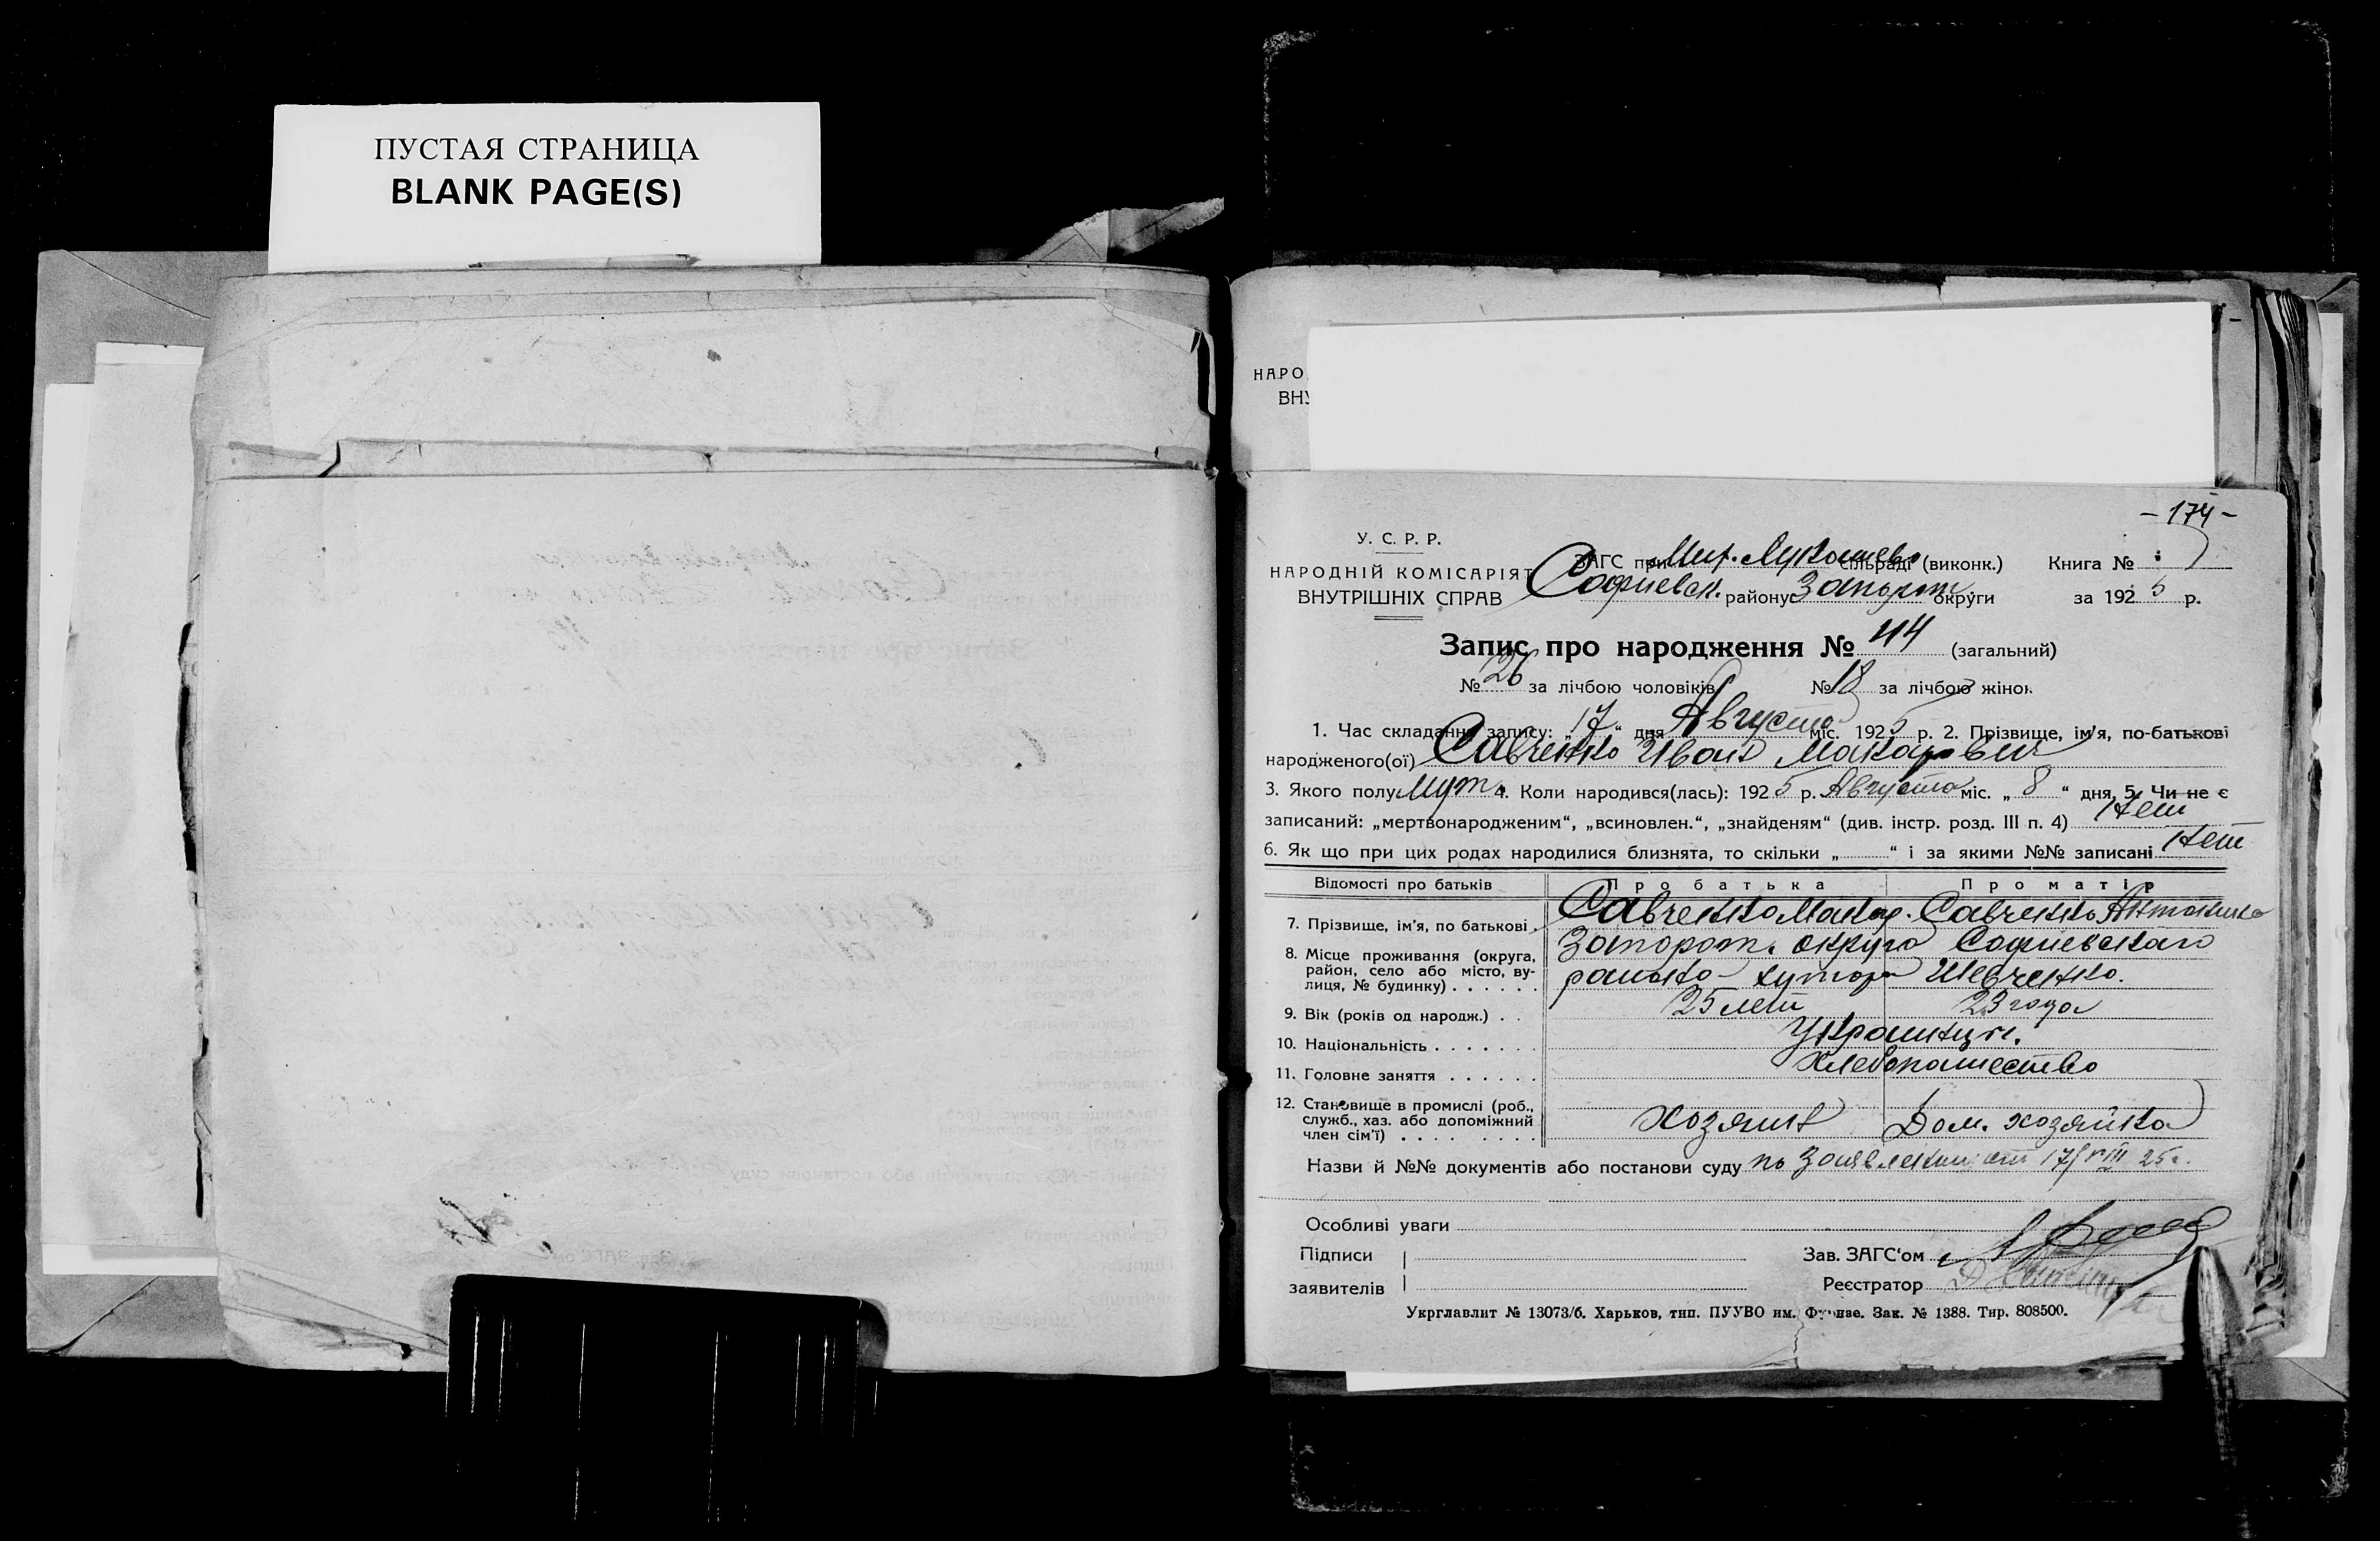 ПУСТАЯ СТРАНИЦА
BLANK PAGE(S)
НАРО
ВНУ
- 174 -
У. С. Р. Р.
НАРОДНІЙ КОМІСАРІЯТ
ВНУТРІШНІХ СПРАВ
ЗАГС при сільраді (виконк.) Книга №
Софиевск. району Запорож. округи за 1925 р.
Запис про народження № 44 (загальний)
№ 26 за лічбою чоловіків № 18 за лічбою жінок
1. Час складання запису: „17“ дня Августа міс. 1925 р. 2. Прізвище, ім'я, по-батькові
народженого(ої) Савченко Иван Макарович
3. Якого полу Муж. 4. Коли народився(лась): 1925 р. Августа міс. „8“ дня, 5. Чи не є
записаний: „мертвонародженим“, „всиновлен.“, „знайденям“ (див. інстр. розд. III п. 4) Нет
6. Як що при цих родах народилися близнята, то скільки „ “ і за якими №№ записані Нет
Відомості про батьків Про батька Про матір
7. Прізвище, ім'я, по батькові . Савченко Макар. Савченко
8. Місце проживання (округа, район, село або місто, вулиця, № будинку) . . . . . . Запорож. округа Софиевскаго
района хутора Шевченко.
9. Вік (років од народж.) . . 25 лет 23 года
10. Національність . . . . . . . Украинцы.
11. Головне заняття . . . . . . Хлебопашество
12. Становище в промислі (роб., служб., хаз. або допоміжний член сім'ї) . . . . . . . . . Хозяин Дом. хозяйка
Назви й №№ документів або постанови суду по заявлению от 17/VIII 25г.
Особливі уваги
Підписи
заявителів
Зав. ЗАГС'ом
Реєстратор
Укрглавлит № 13073/б. Харьков, тип. ПУУВО им. Фрунзе. Зак. № 1388. Тир. 808500.